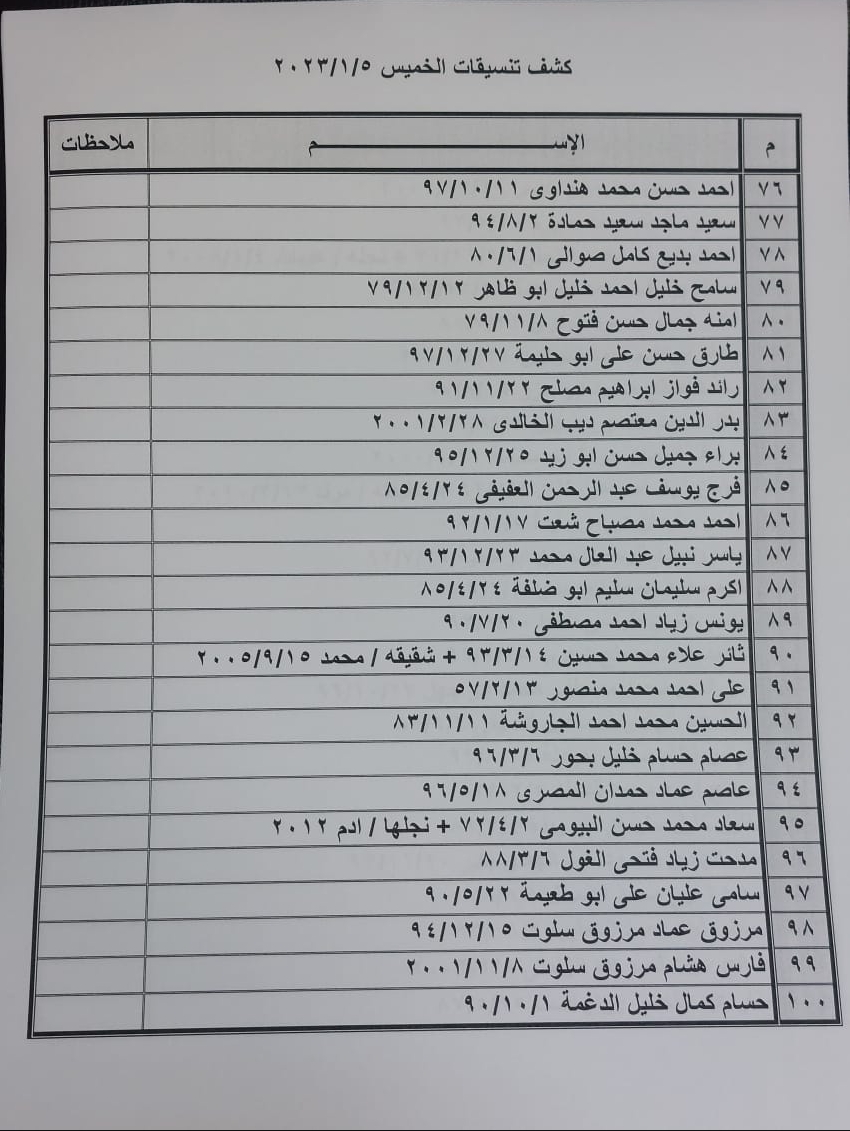 كشف تنسيقات الخميس ٢٠٢٣/١/٥
م الإســـــــم ملاحظات
٧٦ احمد حسن محمد هنداوى ٩٧/١٠/١١
٧٧ سعيد ماجد سعيد حمادة ٩٤/٨/٢
٧٨ احمد بديع كامل صوالى ٨٠/٦/١
٧٩ سامح خليل احمد خليل ابو ظاهر ٧٩/١٢/١٢
٨٠ امنه جمال حسن فتوح ٧٩/١١/٨
٨١ طارق حسن على ابو حليمة ٩٧/١٢/٢٧
٨٢ رائد فواز ابراهيم مصلح ٩١/١١/٢٢
٨٣ بدر الدين معتصم ديب الخالدى ٢٠٠١/٢/٢٨
٨٤ براء جميل حسن ابو زيد ٩٥/١٢/٢٥
٨٥ فرج يوسف عبد الرحمن العفيفى ٨٥/٤/٢٤
٨٦ احمد محمد مصباح شعت ٩٢/١/١٧
٨٧ ياسر نبيل عبد العال محمد ٩٣/١٢/٢٣
٨٨ اكرم سليمان سليم ابو ضلفة ٨٥/٤/٢٤
٨٩ يونس زياد احمد مصطفى ٩٠/٧/٢٠
٩٠ ثائر علاء محمد حسين ٩٣/٣/١٤ + شقيقه / محمد ٢٠٠٥/٩/١٥
٩١ على احمد محمد منصور ٥٧/٢/١٣
٩٢ الحسين محمد احمد الجاروشة ٨٣/١١/١١
٩٣ عصام حسام خليل بحور ٩٦/٣/٦
٩٤ عاصم عماد حمدان المصرى ٩٦/٥/١٨
٩٥ سعاد محمد حسن البيومى ٧٢/٤/٢ + نجلها / ادم ٢٠١٢
٩٦ مدحت زياد فتحى الغول ٨٨/٣/٦
٩٧ سامى عليان على ابو طعيمة ٩٠/٥/٢٢
٩٨ مرزوق عماد مرزوق سلوت ٩٤/١٢/١٥
٩٩ فارس هشام مرزوق سلوت ٢٠٠١/١١/٨
١٠٠ حسام كمال خليل الدغمة ٩٠/١٠/١